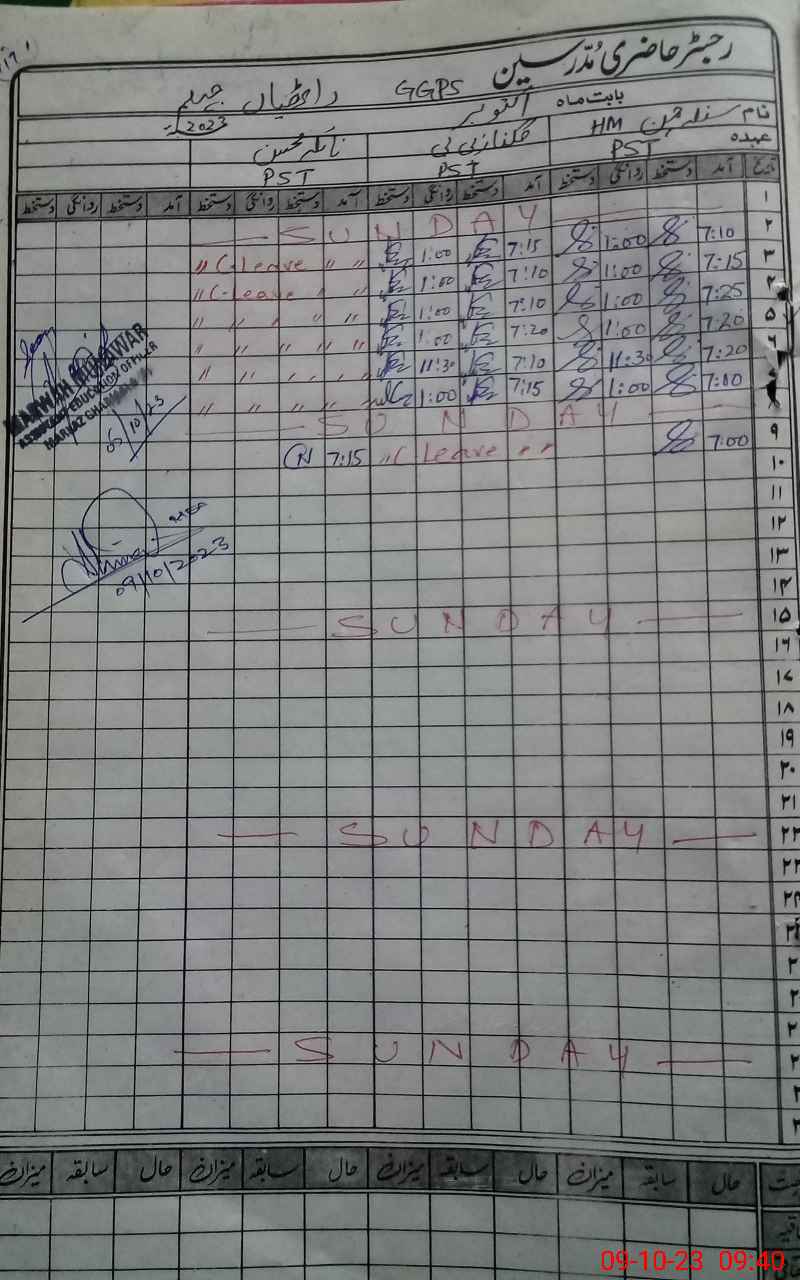 رجسٹر حاضری مدرسین
GGPS داعھیاں جہلم
بابت ماہ اکتوبر 2023
نام HM گلناز بی بی نائلہ محسن
عہدہ PST PST PST
تاریخ آمد دستخط روانگی دستخط آمد دستخط روانگی دستخط آمد دستخط روانگی دستخط آمد دستخط روانگی دستخط
۱ — S U N D A Y —
۲ 7:10 1:00 7:15 1:00 " C-Leave " "
۳ 7:15 1:00 7:10 1:00 " C-Leave " "
7:25 1:00 7:10 1:00 " " " " "
۵ 7:20 1:00 7:20 1:00 " " " " "
7:20 11:30 7:10 11:30 " " " " "
7:00 1:00 7:15 1:00 " " " " "
— S U N D A Y —
۹ 7:00 " C Leave " " 7:15 N
۱۰
۱۱
۱۲
۱۳
۱۴
۱۵ — S U N D A Y —
۱۶
۱۷
۱۸
۱۹
۲۰
۲۱
۲۲ — S U N D A Y —
— S U N D A Y —
MUNAWAR
ASSISTANT EDUCATION OFFICER
MARKAZ
05/10/23
09/10/2023
حال سابقہ میزان حال سابقہ میزان حال سابقہ میزان حال سابقہ میزان
09-10-23 09:40